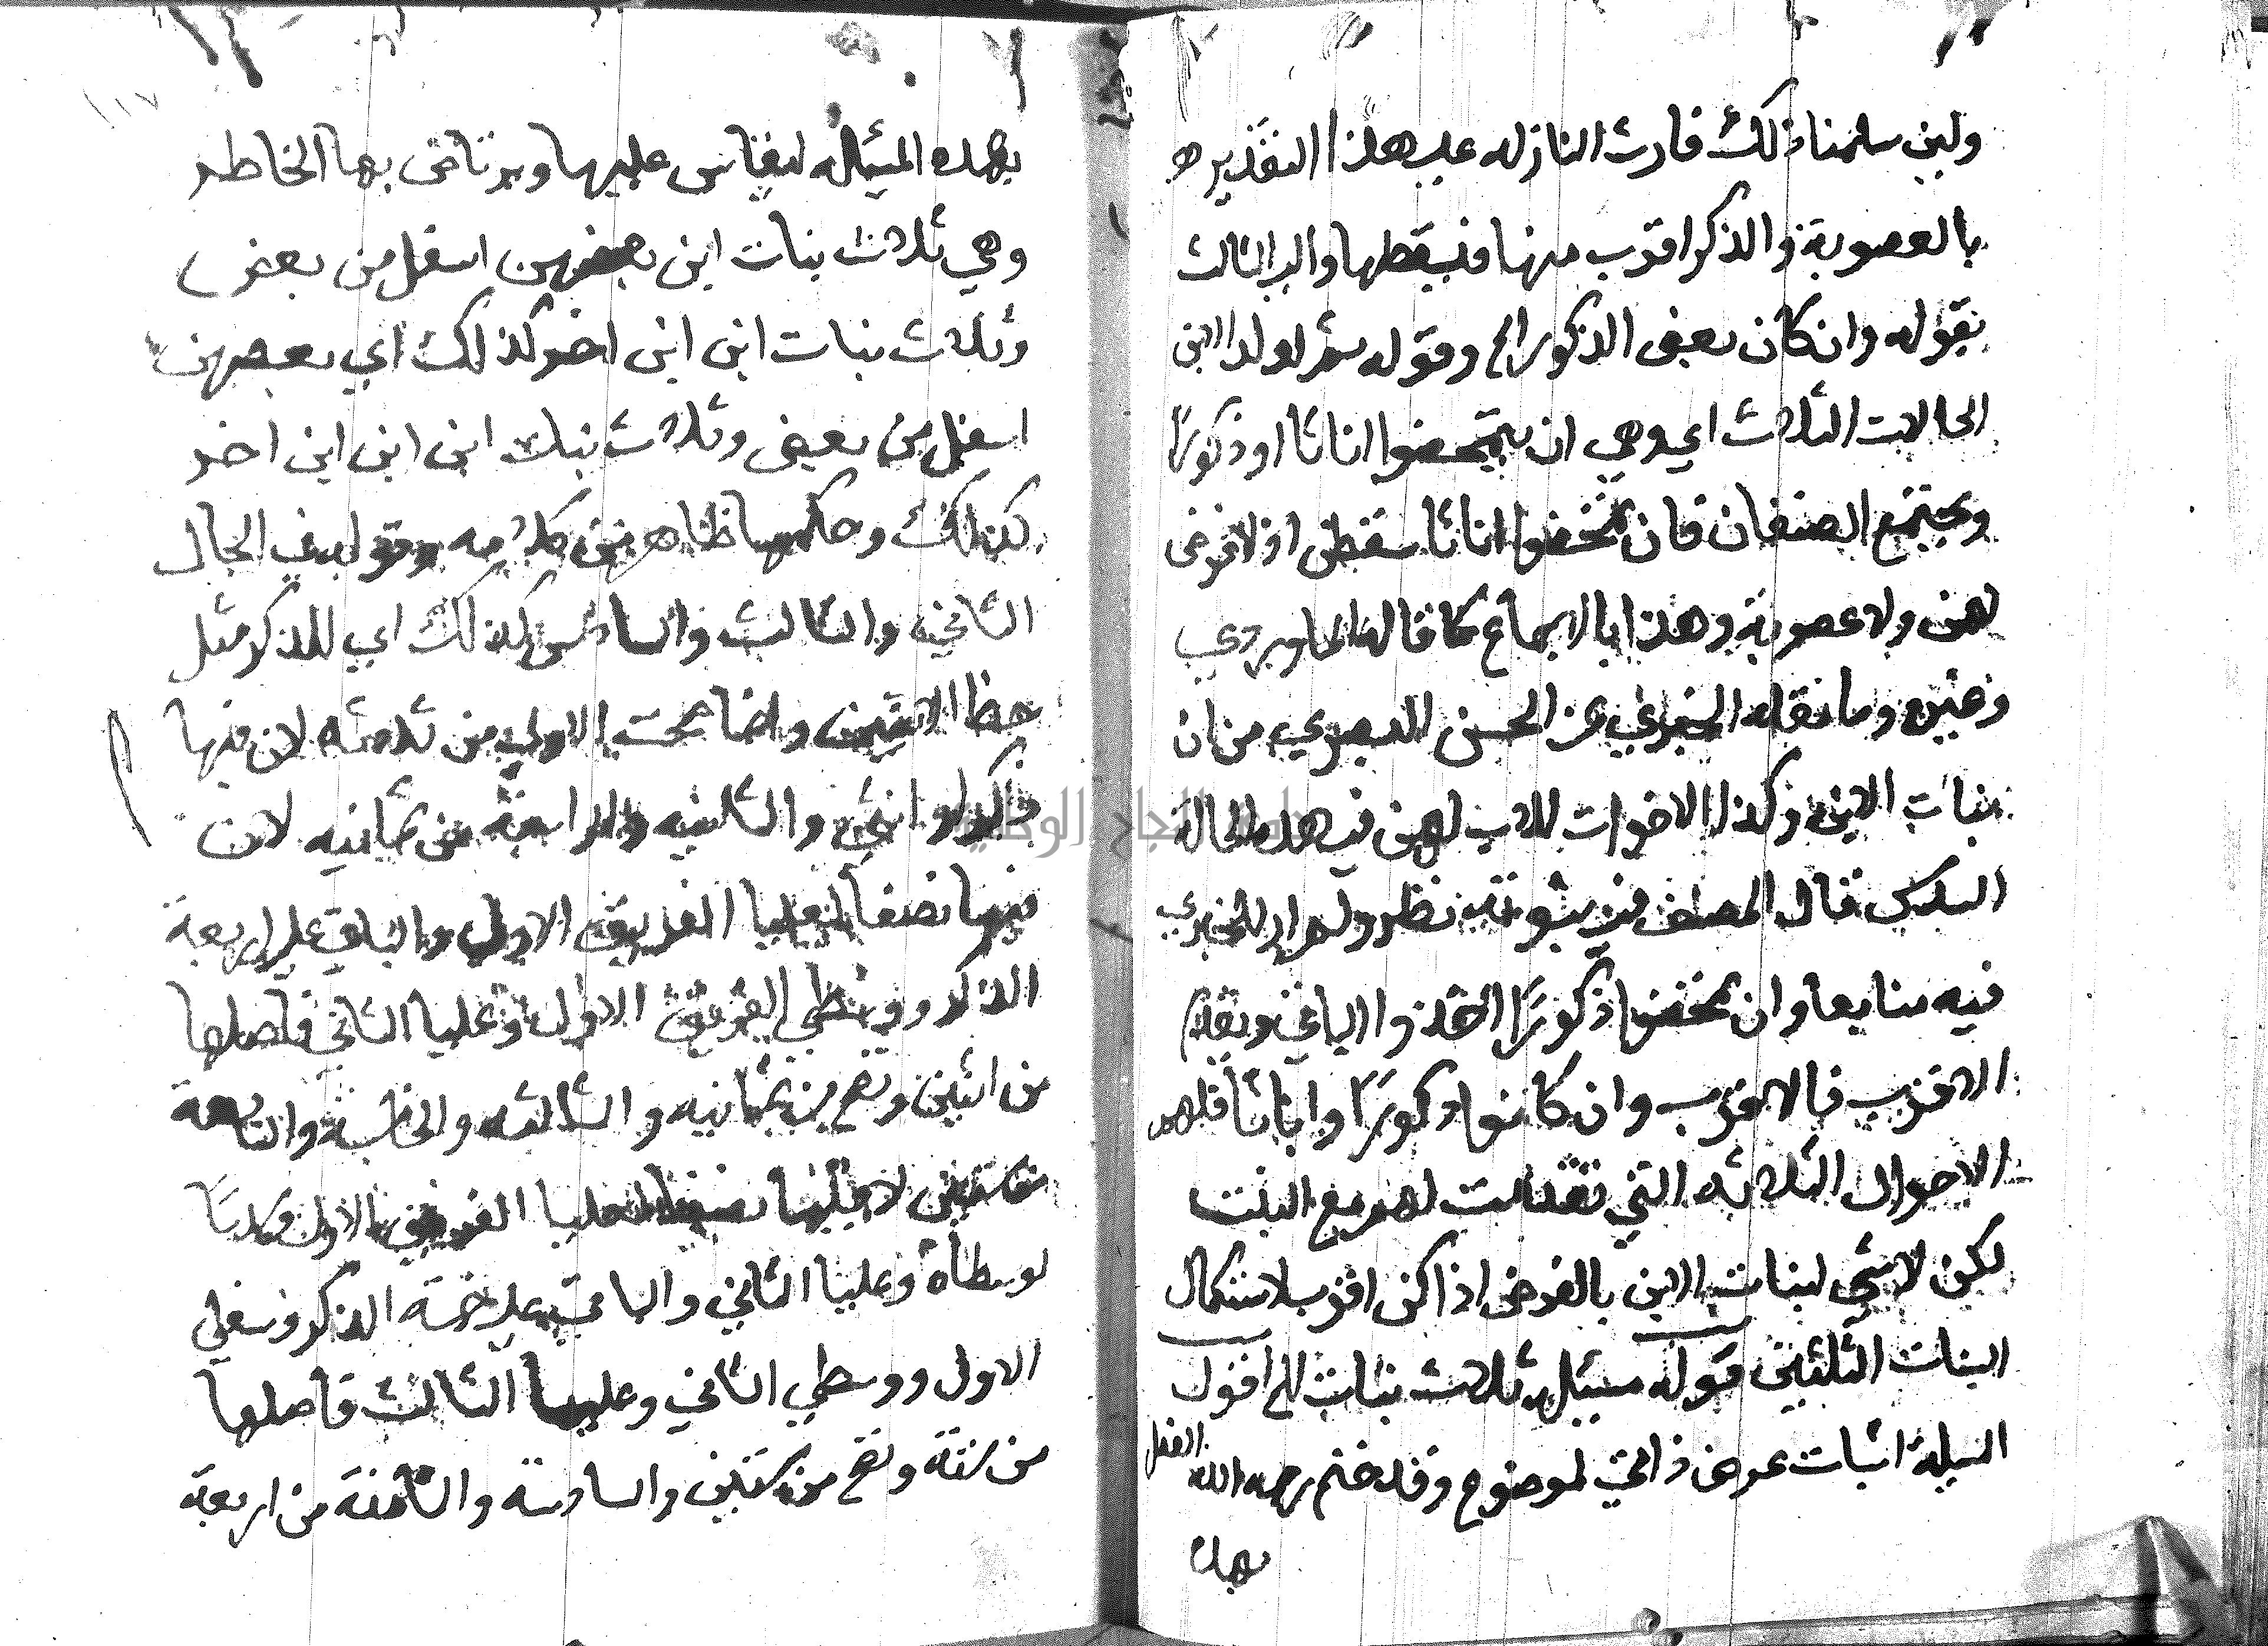 ولين سلمنا ذلك فارث النازله علي هذا التقدير
بالعصوبة والذكر اقرب منها فيسقطها والي الثالث
بقوله وان كان بعض الذكور الخ وقوله ثم لولد الابن
الحالات الثلاث اي وهي ان يتمحضوا اناثا او ذكورًا
ويجتمع الصنفان فان تمحضوا اناثا سقطن اذ لا فرض
لهن ولا عصوبة وهذا بالاجماع كما قاله الماوردي
وغيره وما نقله عن الحسن البصري من ان
بنات الابن وكذا الاخوات للاب لهن في هذه الحالة
قال المصنف في ثبوته نظر ولم ار
فيه متابعا وان تمحضوا ذكورًا اخذوا الباقي ويقدم
الاقرب فالاقرب وان كانوا ذكورًا واناثا فلهم
الاحوال الثلاثه التي تقدمت لهم مع البنت
لكن لا شي لبنات الابن بالفرض اذا كن اقرب لاستكمال
البنات الثلثين قوله مسيلة ثلاث بنات الخ اقول
المسيلة اثبات عرض ذاتي لموضوع وقد ختم رحمه الله الفصل
بهذه
١١٧
بهذه المسيله ليقاس عليها ويرتاض بها الخاطر
وهي ثلاث بنات ابن بعضهن اسفل من بعض
وثلاث بنات ابن ابن اخر كذلك اي بعضهن
اسفل من بعض وثلاث بنات ابن ابن ابن اخر
كذلك وحكمها ظاهر من كلامه وقوله في الحال
الثانيه والثالث والسادس كذلك اي للذكر مثل
حظ الانثيين وانما صحت الاولي من ثلاثه لان فيها
ذكرا وانثي والثانيه والرابعة من ثمانيه لان
فيها نصفا لعليا الفريق الاول والباقي علي اربعة
الذكر ووسطي الفريق الاول وعليا الثاني فاصلها
من اثنين وتصح من ثمانيه والثالثه والخامسة والتاسعة
من ستين لان فيها نصفا لعليا الفريق الاول وسدسًا
لوسطاه وعليا الثاني والباقي علي خمسة الذكر وسفلي
الاول ووسطي الثاني وعليا الثالث فاصلها
من ستة وتصح من ستين والسادسة والثامنة من اربعة
جامعة النجاح الوطنية